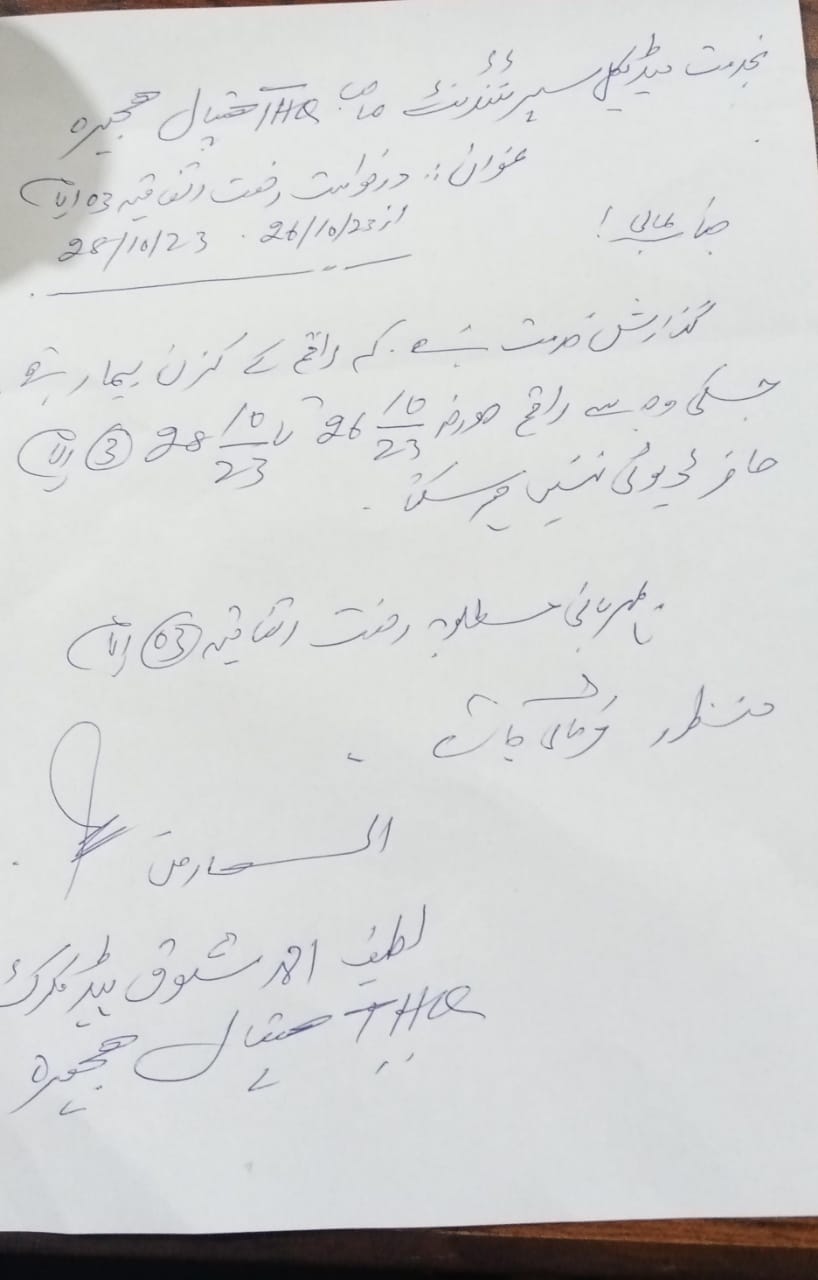 بخدمت میڈیکل سپرنٹنڈنٹ صاحب THQ ہسپتال ہجیرہ
عنوان :: درخواست رخصت اتفاقیہ 03 ایام
از 26/10/23 . 28/10/23
جناب عالی !
گذارش خدمت ہے . کہ راقم کے کزن بیمار ہے
جسکی وجہ سے راقم مورخہ 26 10/23 تا 28 10/23 (3) ایام
حاضر ڈیوٹی نہیں کر سکتا .
بامہربانی مطلوبہ رخصت اتفاقیہ (03) ایام
منظور فرمائی جائے .
العارض
لطیف احمد ہیڈ کلرک
THQ ہسپتال ہجیرہ